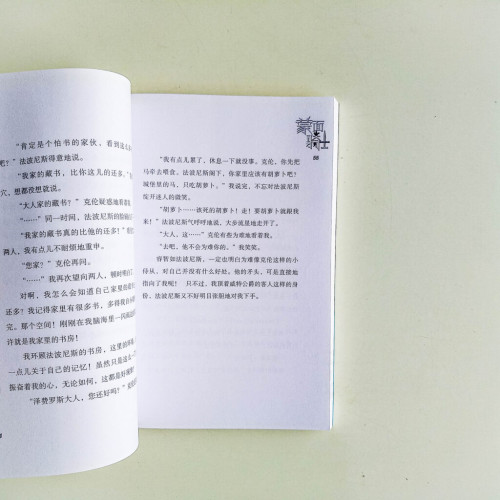 “肯定是个怕书的家伙，看到这么
吧？”法波尼斯得意地说。
“我家的藏书，比你这儿的还多。”
穴，想都没想就说。
“大人家的藏书？”克伦疑惑地看着
“……”同一时间，法波尼斯的脸
“我家的藏书真的比他的还多！”
两人，我有点儿不耐烦地重申。
“您家？”克伦再问。
“……”我再次望向两人，顿时明白了
对啊，我怎么会知道自己家里的藏
书？我记得家里有很多书，多得我自
完。那个空间！刚刚在我脑海里一闪
许就是我家里的书房！
我环顾法波尼斯的书房，这里的
一点儿关于自己的记忆！虽然只是这
振奋着我的心，无论如何，这都是好
“泽赞罗斯大人，您还好吗？”克
蒙面骑士
88
“我有点儿累了，休息一下就没事。克伦，你先把
马牵去喂食。法波尼斯阁下，你家里应该有胡萝卜吧？
城堡里的马，只吃胡萝卜。”我说完，不忘对法波尼斯
绽开迷人的微笑。
“胡萝卜……该死的胡萝卜！走！要胡萝卜就跟我
来！”法波尼斯气呼呼地说，大步流星地走开了。
“大人，这……”克伦有些为难地看着我。
“去吧，他不会为难你的。”我笑笑。
睿智如法波尼斯，一定也明白为难像克伦这样的小
侍从，对自己并没有什么好处。他的矛头，可是直接地
指向了我呢！ 只不过，我顶着威特公爵的客人这样的身
份，法波尼斯又不好明目张胆地对我下手。